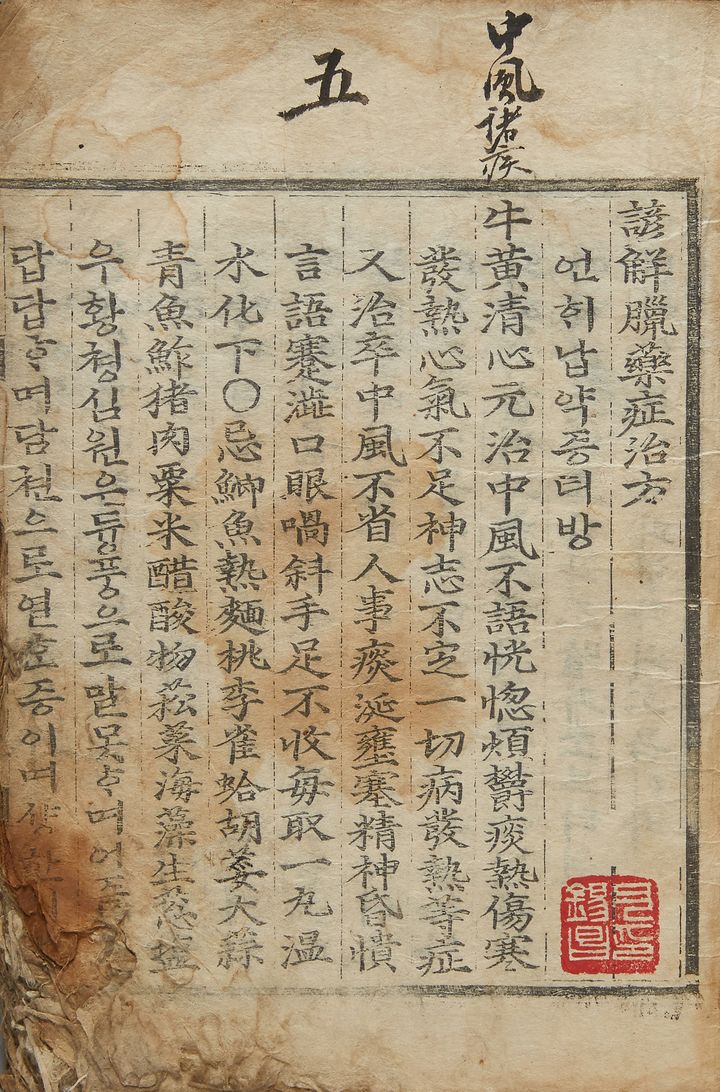 中風諸疾
五
諺解臘藥症治方
언ᄒᆡ납약증티방
牛黃清心元治中風不語恍惚煩欝痰熱傷寒
發熱心氣不足神志不定一切病發熱等症
又治卒中風不省人事痰涎壅塞精神昏憒
言語蹇澁口眼喎斜手足不收每取一丸溫
水化下〇忌鯽魚熱麵桃李雀蛤胡荽大蒜
青魚鮓猪肉粟米醋酸物菘菜海藻生葱
우황쳥심원은듕풍으로말못ᄒᆞ며어
답답ᄒᆞ며담쳔으로연호증이며샹한